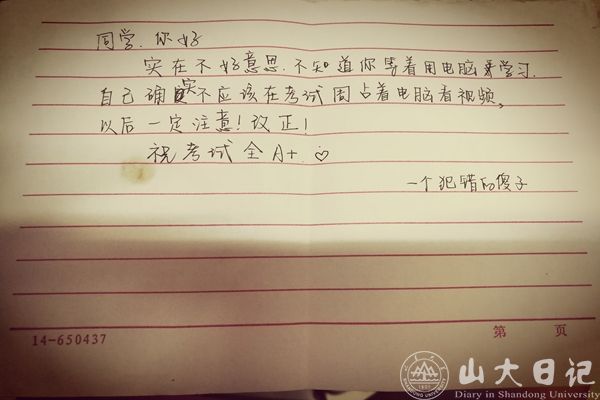 同学.你好
实在不好意思.不知道你等着用电脑来学习.
自己确实不应该在考试周占着电脑看视频,
以后一定注意!改正!
祝考试全A+
一个犯错的傻子
14-650437
第 页
山大日记
Diary in Shandong University